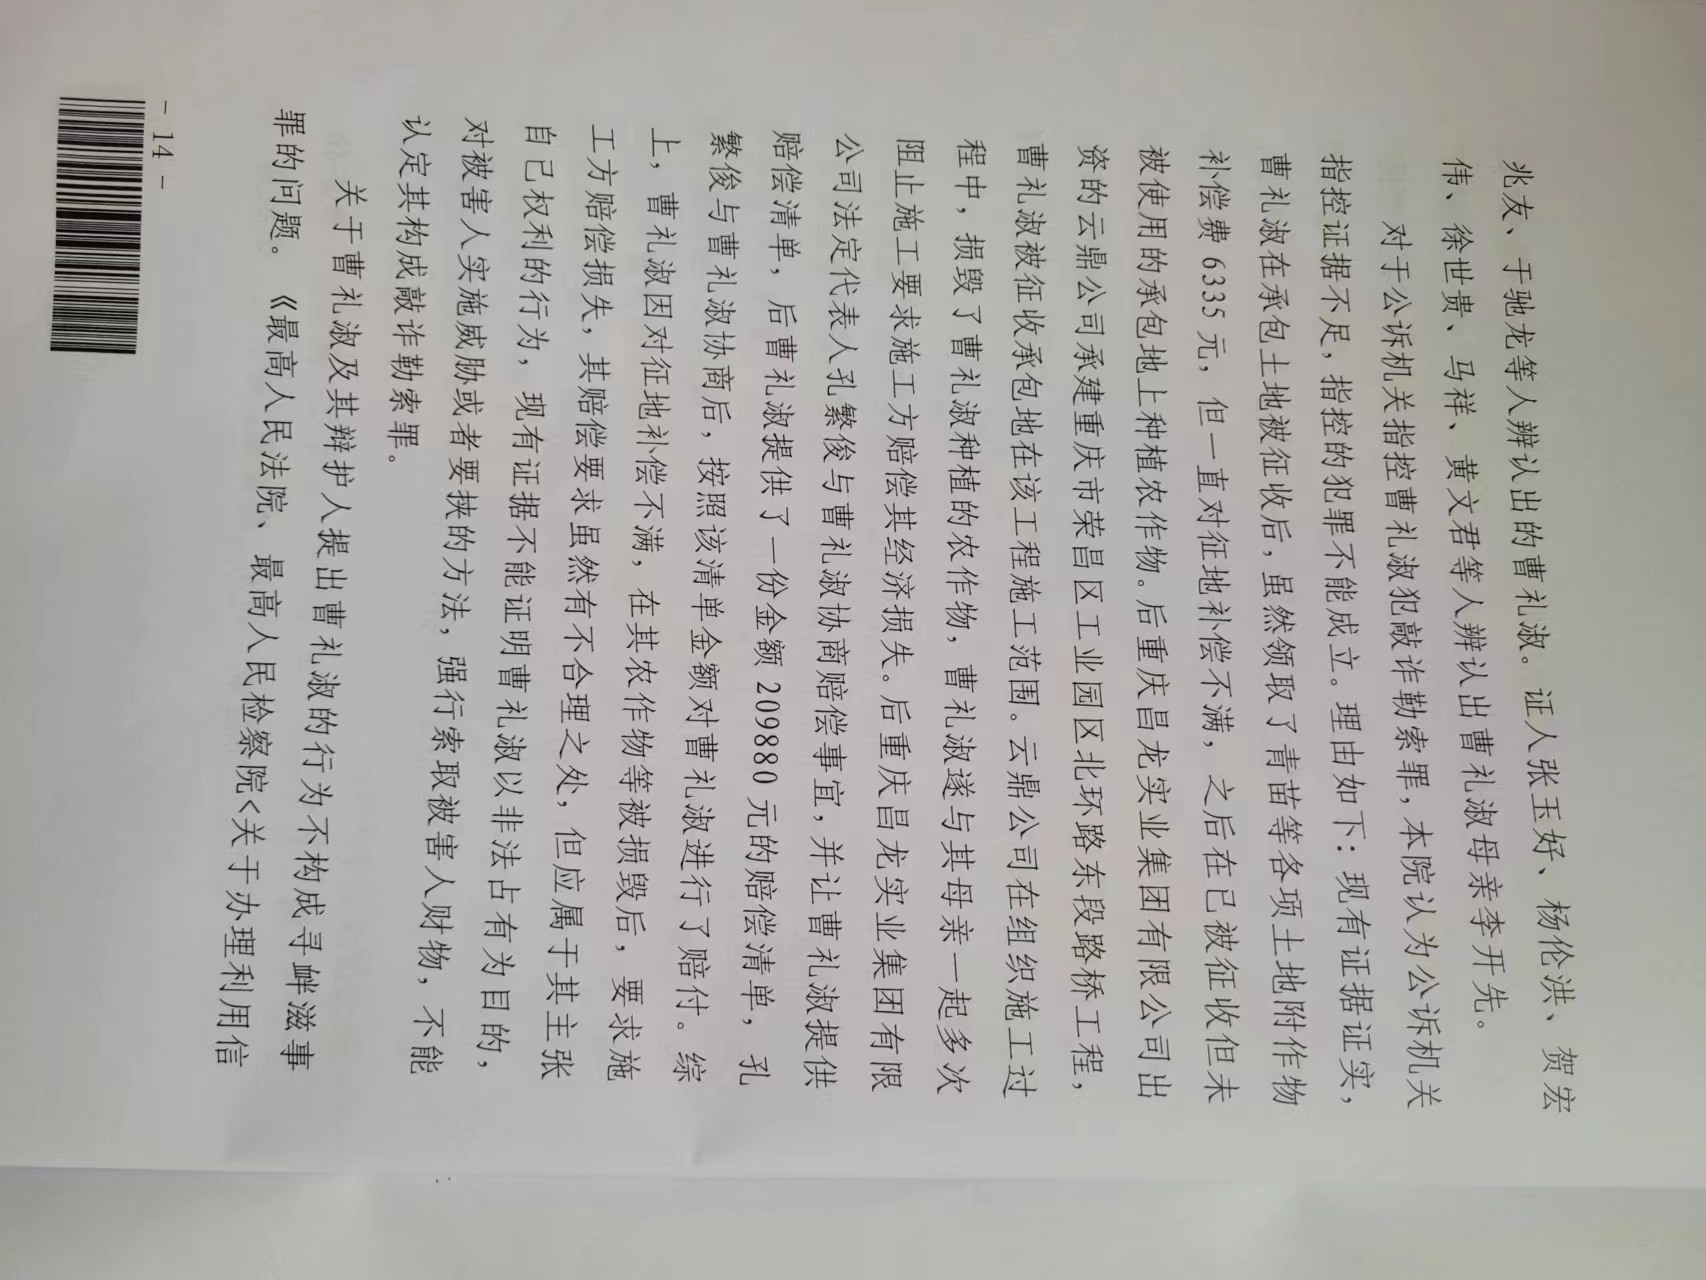 兆友、于驰龙等人辨认出的曹礼淑。证人张玉好、杨伦洪、贺宏
伟、徐世贵、马祥、黄文君等人辨认出曹礼淑母亲李开先。
对于公诉机关指控曹礼淑犯敲诈勒索罪,本院认为公诉机关
指控证据不足,指控的犯罪不能成立。理由如下:现有证据证实,
曹礼淑在承包土地被征收后,虽然领取了青苗等各项土地附作物
补偿费6335元,但一直对征地补偿不满,之后在已被征收但未
被使用的承包地上种植农作物。后重庆昌龙实业集团有限公司出
资的云鼎公司承建重庆市荣昌区工业园区北环路东段路桥工程,
曹礼淑被征收承包地在该工程施工范围。云鼎公司在组织施工过
程中,损毁了曹礼淑种植的农作物,曹礼淑遂与其母亲一起多次
阻止施工要求施工方赔偿其经济损失。后重庆昌龙实业集团有限
公司法定代表人孔繁俊与曹礼淑协商赔偿事宜,并让曹礼淑提供
赔偿清单,后曹礼淑提供了一份金额209880元的赔偿清单,孔
繁俊与曹礼淑协商后,按照该清单金额对曹礼淑进行了赔付。综
上,曹礼淑因对征地补偿不满,在其农作物等被损毁后,要求施
工方赔偿损失,其赔偿要求虽然有不合理之处,但应属于其主张
自己权利的行为,现有证据不能证明曹礼淑以非法占有为目的,
对被害人实施威胁或者要挟的方法,强行索取被害人财物,不能
认定其构成敲诈勒索罪。
关于曹礼淑及其辩护人提出曹礼淑的行为不构成寻衅滋事
罪的问题。《最高人民法院、最高人民检察院<关于办理利用信
- 14 -